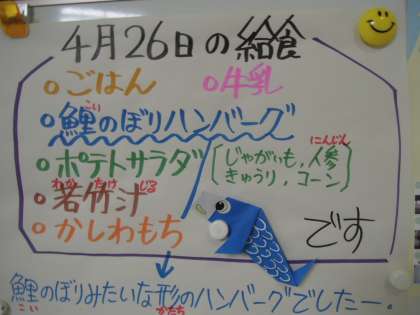 4月26日の給食
○ごはん ○牛乳
こい
○鯉のぼりハンバーグ
にんじん
○ポテトサラダ(じゃがいも,人参
きゅうり,コーン)
わか たけ じる
○若竹汁
○かしわもち です
鯉のぼりみたいな形のハンバーグでしたー.
かたち